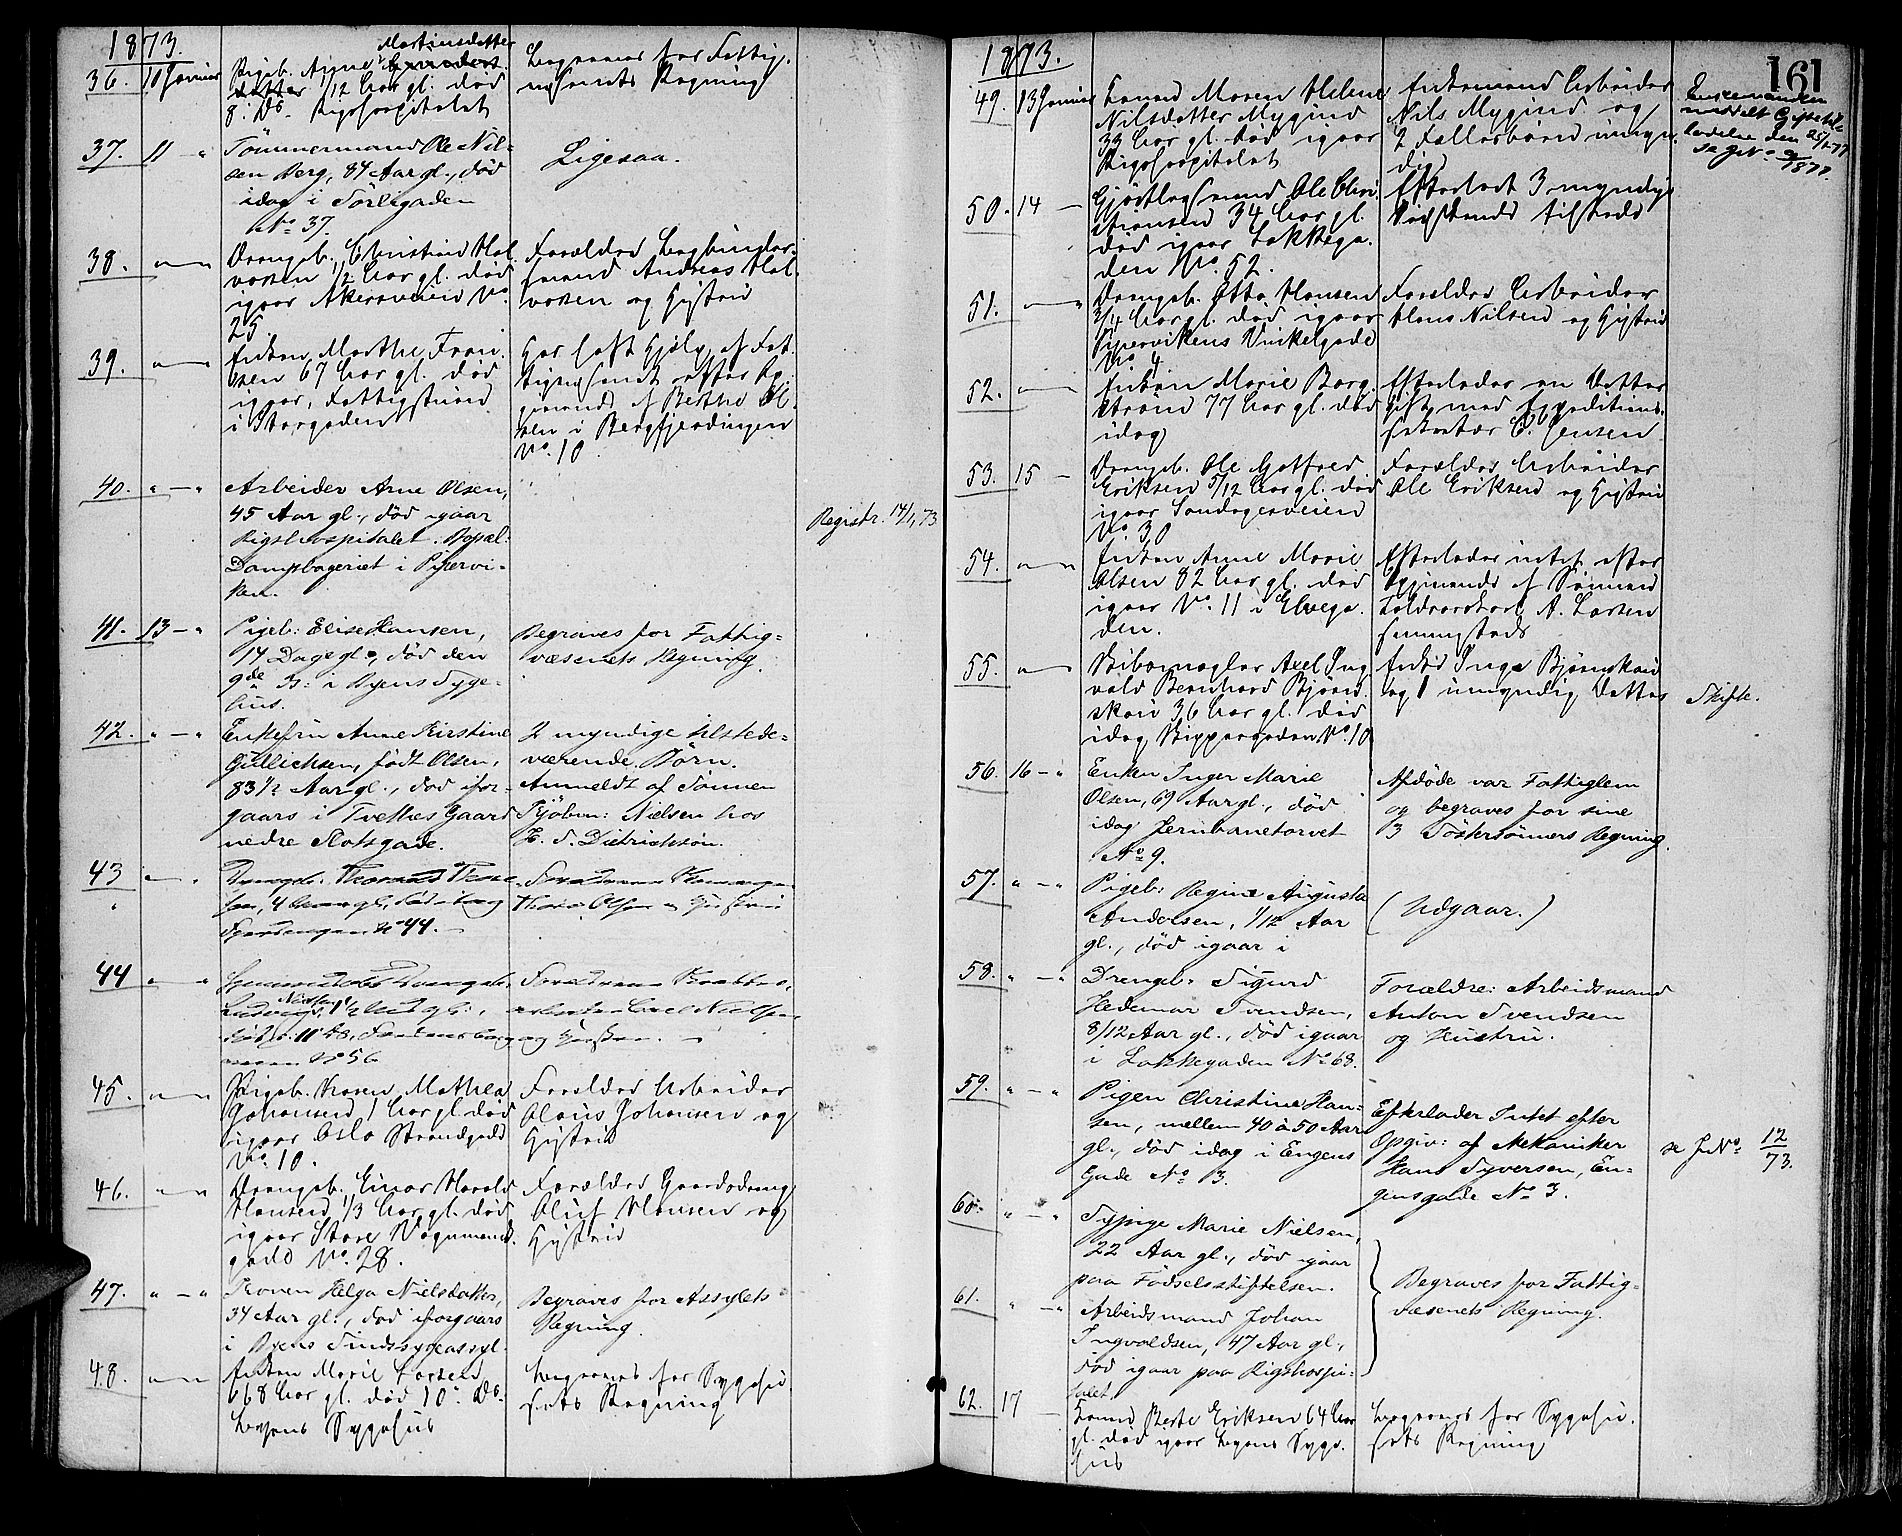 1873.
36. 10 Januar
Pigeb. Anne Martinsdatter
1/12 Aar gl. død
8. Ds. Rigshospitalet
begraves for Fattig-
væsenets Regning
37. 11 - "
Tömmermand Ole Nil-
sen Berg, 84 Aar gl., död
idag i
No 37.
Ligesaa.
38. " - "
Drengeb. Christian Hal-
vorsen 1/2 Aar gl. død
igaar Akersveien No.
25.
Forældre Bogbinder-
svend Andreas Hal-
vorsen og Hustru
39. " - "
Enken Marthe Fran-
sen 67 Aar gl. død
igaar, Fattigstuen
i Storgaden
Har havt Hjælp af Fat-
tigvæsenet efter Op-
givende af Berthe Ol-
sen i Bergfjerdingen
No. 10
40. " - "
Arbeider Arne Olsen,
45 Aar gl., död igaar
Rigshospitalet. Bopæl:
Dampbageriet i Pipervi-
ken.
Registr. 14/1 73
41. 13 - "
Pigeb: Elise Hansen,
14 Dage gl., död den
9de ds: i Byens Syge-
hus.
Begraves for Fattig-
væsenets Regning.
42. " - "
Enkefru Anne Kirstine
Gullichsen, födt Olsen,
83 1/2 Aar gl., död ifor-
gaars i Tvethes Gaard
nedre Slotsgade.
2 myndige tilstede-
værende Börn.
Anmeldt af Sönnen
Kjöbm: Nielsen hos
H. S. Didrichson.
43 " - "
Drengeb. Thomas
4 Aar gl., död idag
No 44.
Forældrene
Olsen og Hustru
44 " - "
Drengeb.
Ludvig Nielsen, 1 1/2
död d. 11 ds,
No 56
Forældrene
arbeider Carl Nielsen
og Hustru.
45. " - "
Pigeb. Karen Mathea
Johansen, 1 Aar gl. død
igaar Oslo Strandgade
No. 10.
Forældre Arbeider
Olaus Johansen og
Hustru
46. " - "
Drengeb. Einar Harald
Hansen, 1/3 Aar gl. død
igaar Store Vognmands-
gade No. 28.
Forældre Gaardsdreng
Oluf Hansen og
Hustru
47. " - "
Konen Helga Nielsdatter,
34 Aar gl., död iforgaars
i Byens Sindssygeasyl.
Begraves for Assylets
Regning.
48. " - "
Enken Marie Larsen
68 Aar gl. død 10. Ds.
byens Sygehus
begraves for Sygehu-
sets Regning
161
1873.
49. 13 Januar
Maren Helene
Nilsdatter Mygind
33 Aar gl. død igaar
Rigshospitalet
Enkemand Arbeider
Nils Mygind og
2 Fællesbørn umyn-
dige
Enkemanden
meddelt Giftetil-
ladelse den 25/1-77
se JNo 9/1877.
50. 14 -
Ole Chri-
stiansen 34 Aar gl.
død igaar Lakkega-
den No. 52.
Efterladt 3 myndige
Sødskende tilstede
51. " - "
Drengeb. Otto Hansen
3/4 Aar gl. død igaar
Pipervikens Vinkelgade
No 4
Forældre Arbeider
Hans Nilsen og Hustru
52. " - "
Enken Marie Berg-
strøm 77 Aar gl. død
idag
Efterlader en Datter
gift med Expeditions-
sekretær C. Jensen
53. 15 -
Drengeb. Ole Gotfred
Eriksen 5/12 Aar gl. død
igaar Sandakerveien
No 30
Forældre Arbeider
Ole Eriksen og Hustru
54. " - "
Enken Anne Marie
Olsen 82 Aar gl. død
igaar No. 11 i Elvega-
den.
Efterlader intet efter
Opgivende af Sønnen
Toldvagtbetj. A. Larsen
55. " - "
Skibsmægler Axel Ing-
vald Bernhard Bjørn-
skau 36 Aar gl. død
idag Skippergaden No. 10
Enke Inga Bjørnskau
og 1 umyndig Datter
Skifte.
56. 16 - "
Enken Inger Marie
Olsen, 69 Aar gl., död
idag Jernbanetorvet
No 9.
Afdöde var Fattiglem
og begraves for sine
3 Söstersönners Regning.
57. " - "
Pigeb: Regine Augusta
Andersen, 1/12 Aar
gl., död igaar i
(Udgaar.)
58. " - "
Drengeb: Sigurd
Hedemar Svendsen,
8/12 Aar gl., död igaar
i Lakkegaden No 68.
Forældre: Arbeidsmand
Anton Svendsen
og Hustru.
59. " - "
Pigen Christine Han-
sen, mellem 40 à 50 Aar
gl., död idag i Engens
Gade No 3.
Efterlader Intet efter
Opgiv: af Mekaniker
Hans Syversen, En-
gensgade No 3.
se JNo. 12/73.
60. " - "
Sypige Marie Nielsen,
22 Aar gl., död igaar
paa Födselsstiftelsen.
61. " - "
Arbeidsmand Johan
Ingvaldsen, 47 Aar gl.,
död igaar paa Rigshospi-
talet.
Begraves for Fattig-
væsenets Regning.
62. 17 -
Berte Eriksen 64 Aar
gl. død igaar byens Syge-
hus
begraves for Sygehu-
sets Regning